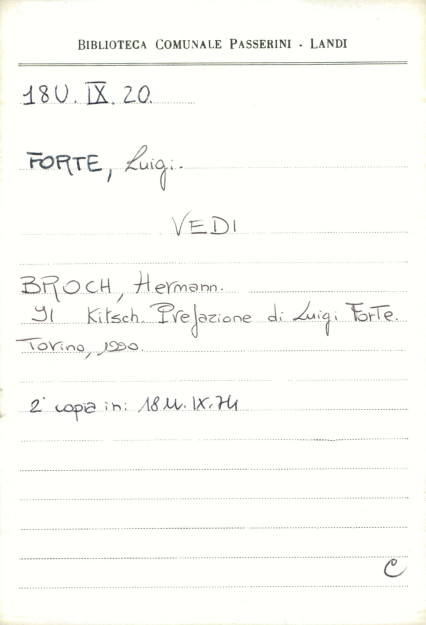 BIBLIOTECA COMUNALE PASSERINI - LANDI
18U. IX. 20.
FORTE, Luigi.
VEDI
BROCH, Hermann.
Il Kitsch. Prefazione di Luigi Forte.
Torino, 1990.
2ª copia in: 18U.IX.74
C